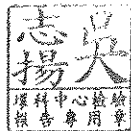 吳
志揚
環科中心檢驗
報告專用章